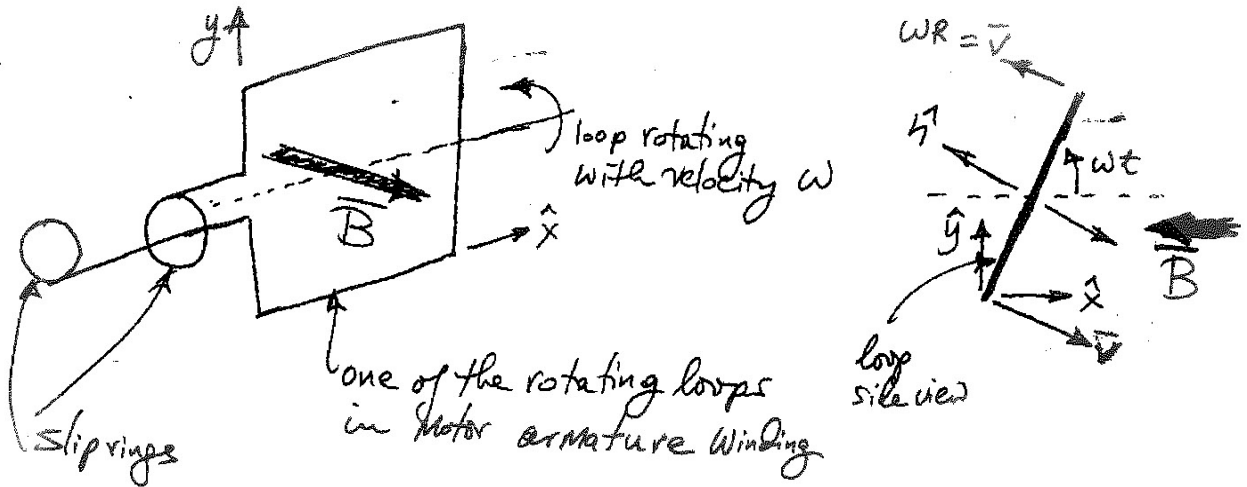 y
loop rotating
with velocity ω
B
x̂
one of the rotating loops
in Motor armature Winding
Slip rings
ωR = v̄
n
ωt
ŷ
B
x̂
v̄
loop
side view